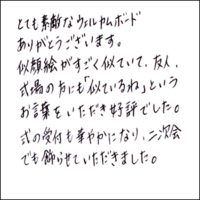 とても素敵なウェルカムボード
ありがとうございます。
似顔絵がすごく似ていて、友人、
式場の方にも「似ているね」という
お言葉をいただき好評でした。
式の受付も華やかになり、二次会
でも飾らせていただきました。